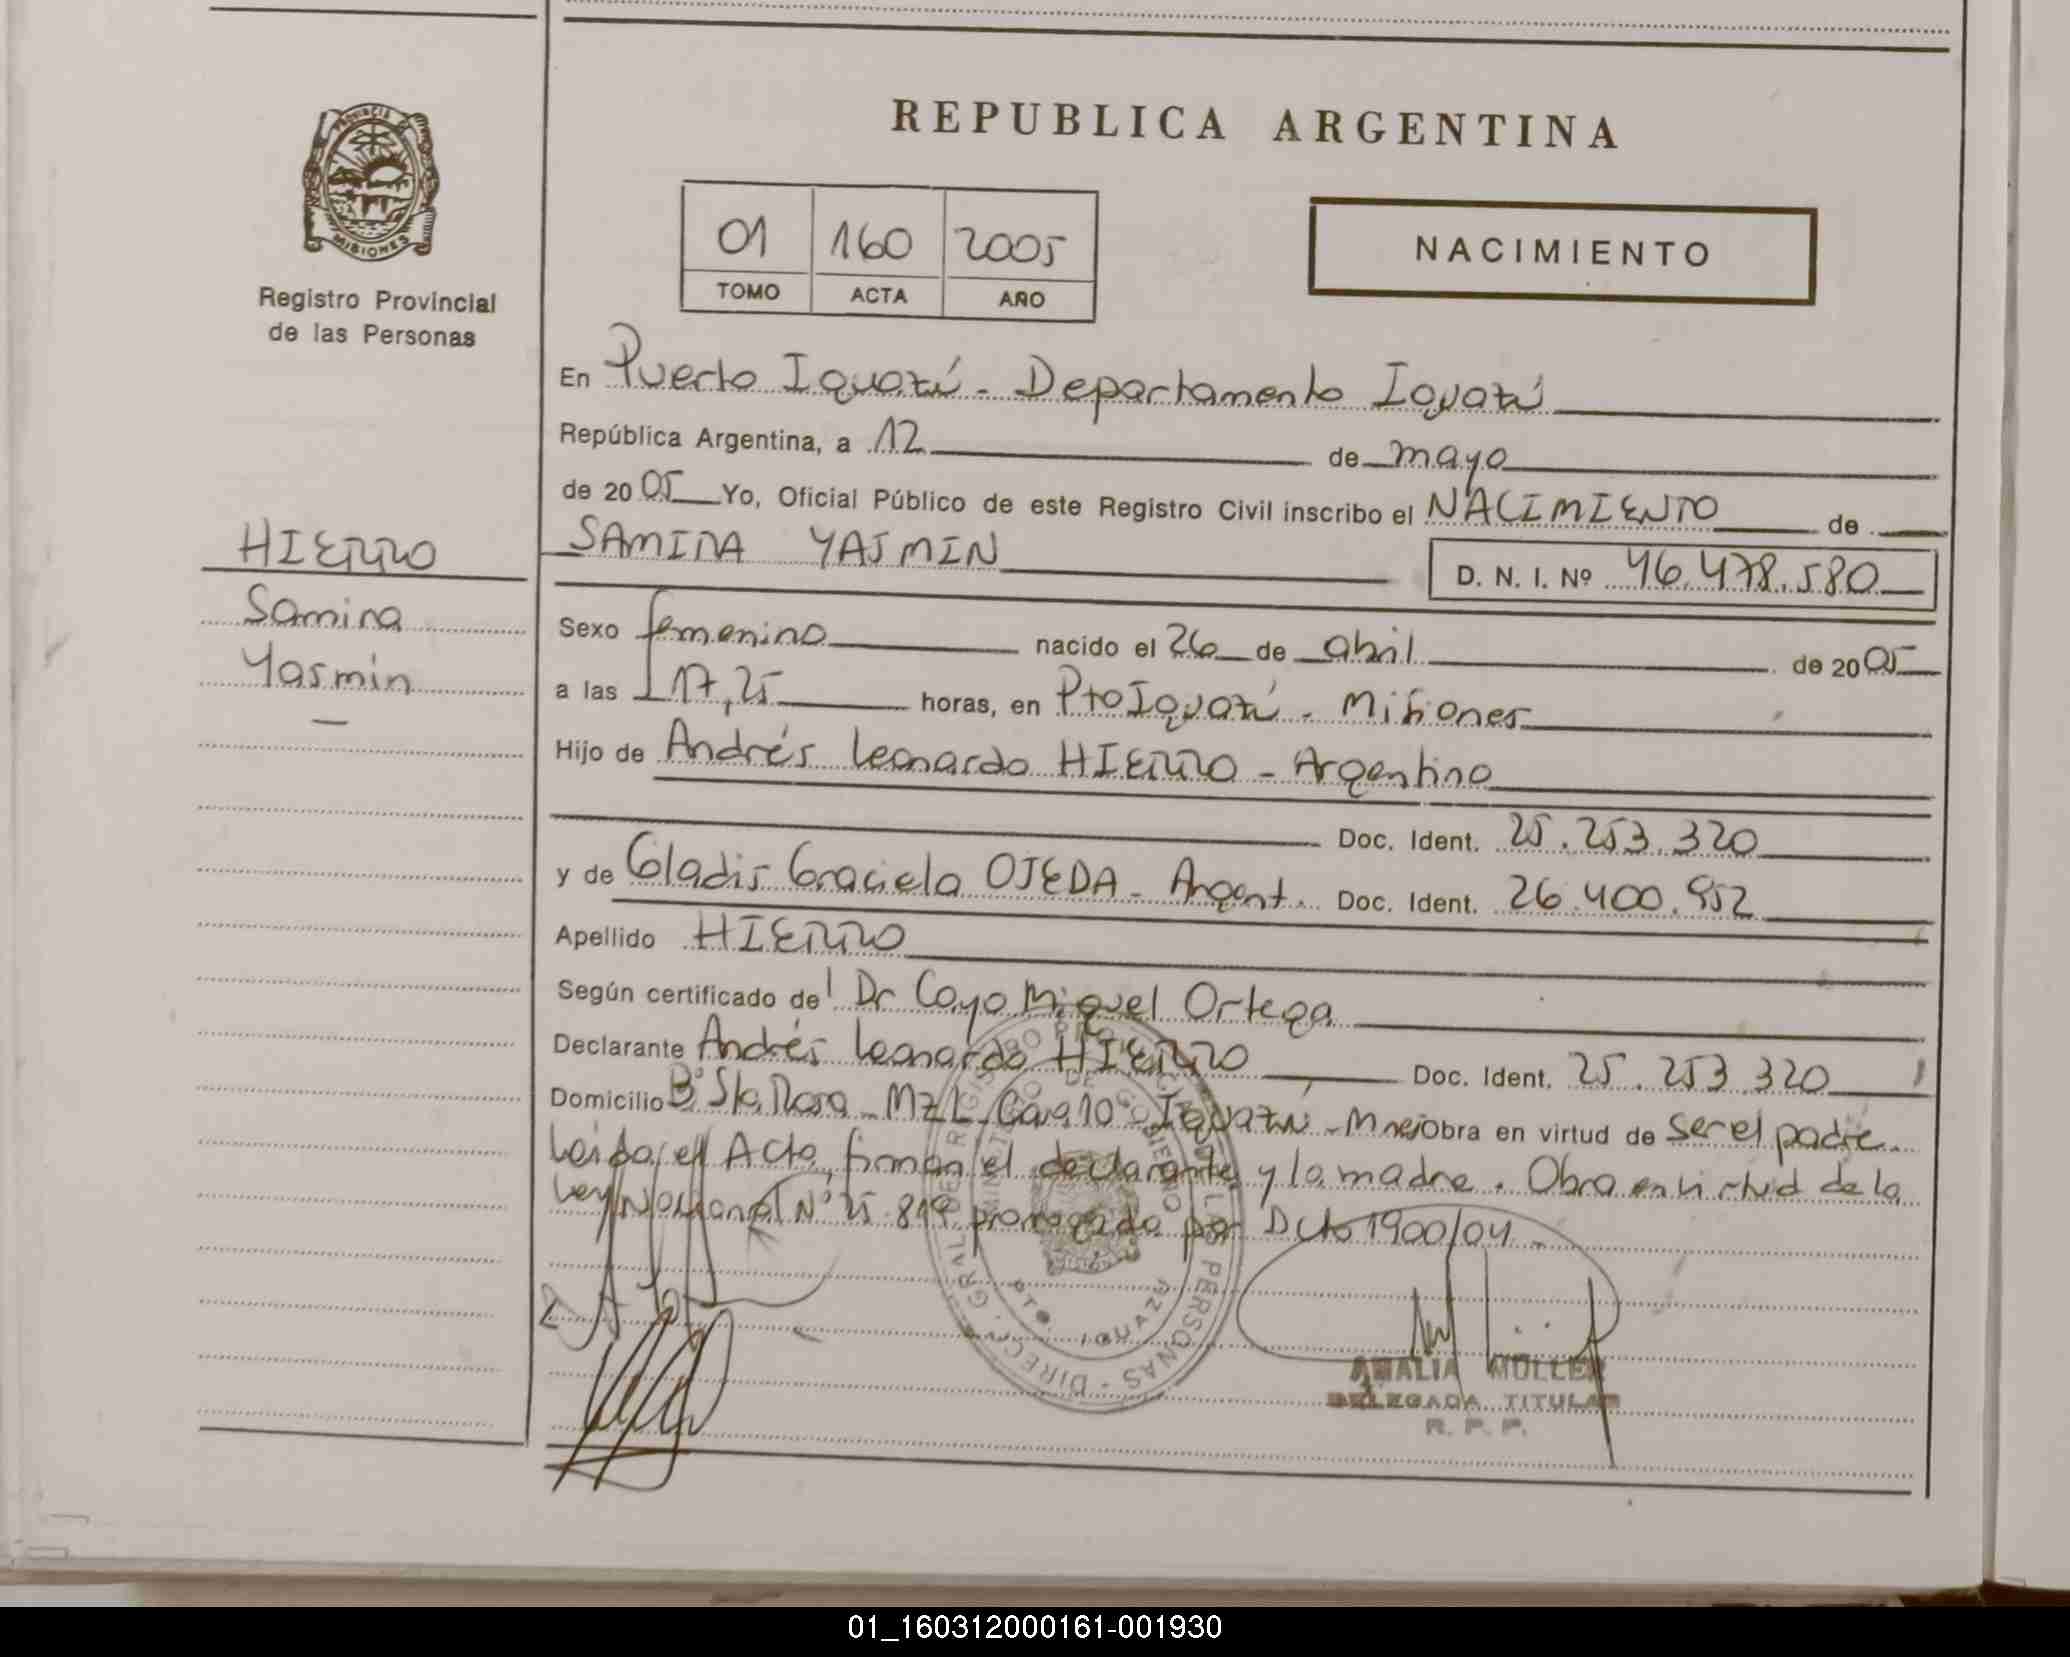 REPUBLICA ARGENTINA
PROVINCIA DE
MISIONES
Registro Provincial
de las Personas
01 160 2005
TOMO ACTA AÑO
NACIMIENTO
En Puerto Iguazú - Departamento Iguazú
República Argentina, a 12 de mayo
de 2005 Yo, Oficial Público de este Registro Civil inscribo el NACIMIENTO de
HIERRO
SAMIRA YASMIN
D. N. I. Nº 46.478.580
Samira
Yasmin
Sexo femenino nacido el 26 de abril de 2005
a las 17,25 horas, en Pto Iguazú - Misiones
Hijo de Andrés Leonardo HIERRO - Argentino
Doc. Ident. 25.253.320
y de Gladis Graciela OJEDA - Argent. Doc. Ident. 26.400.952
Apellido HIERRO
Según certificado de Dr Cayo Miguel Ortega
Declarante Andrés Leonardo HIERRO Doc. Ident. 25.253.320
Domicilio Bº Sta. Rosa - MzL Casa 10 - Iguazú - Mnes obra en virtud de ser el padre.
Leída el Acta, firman el declarante y la madre. Obra en virtud de la
Ley Nacional Nº 25.819 prorrogada por Dcto 1900/04 -
PTO. IGUAZU
AMALIA MÜLLER
DELEGADA TITULAR
R. P. P.
01_160312000161-001930